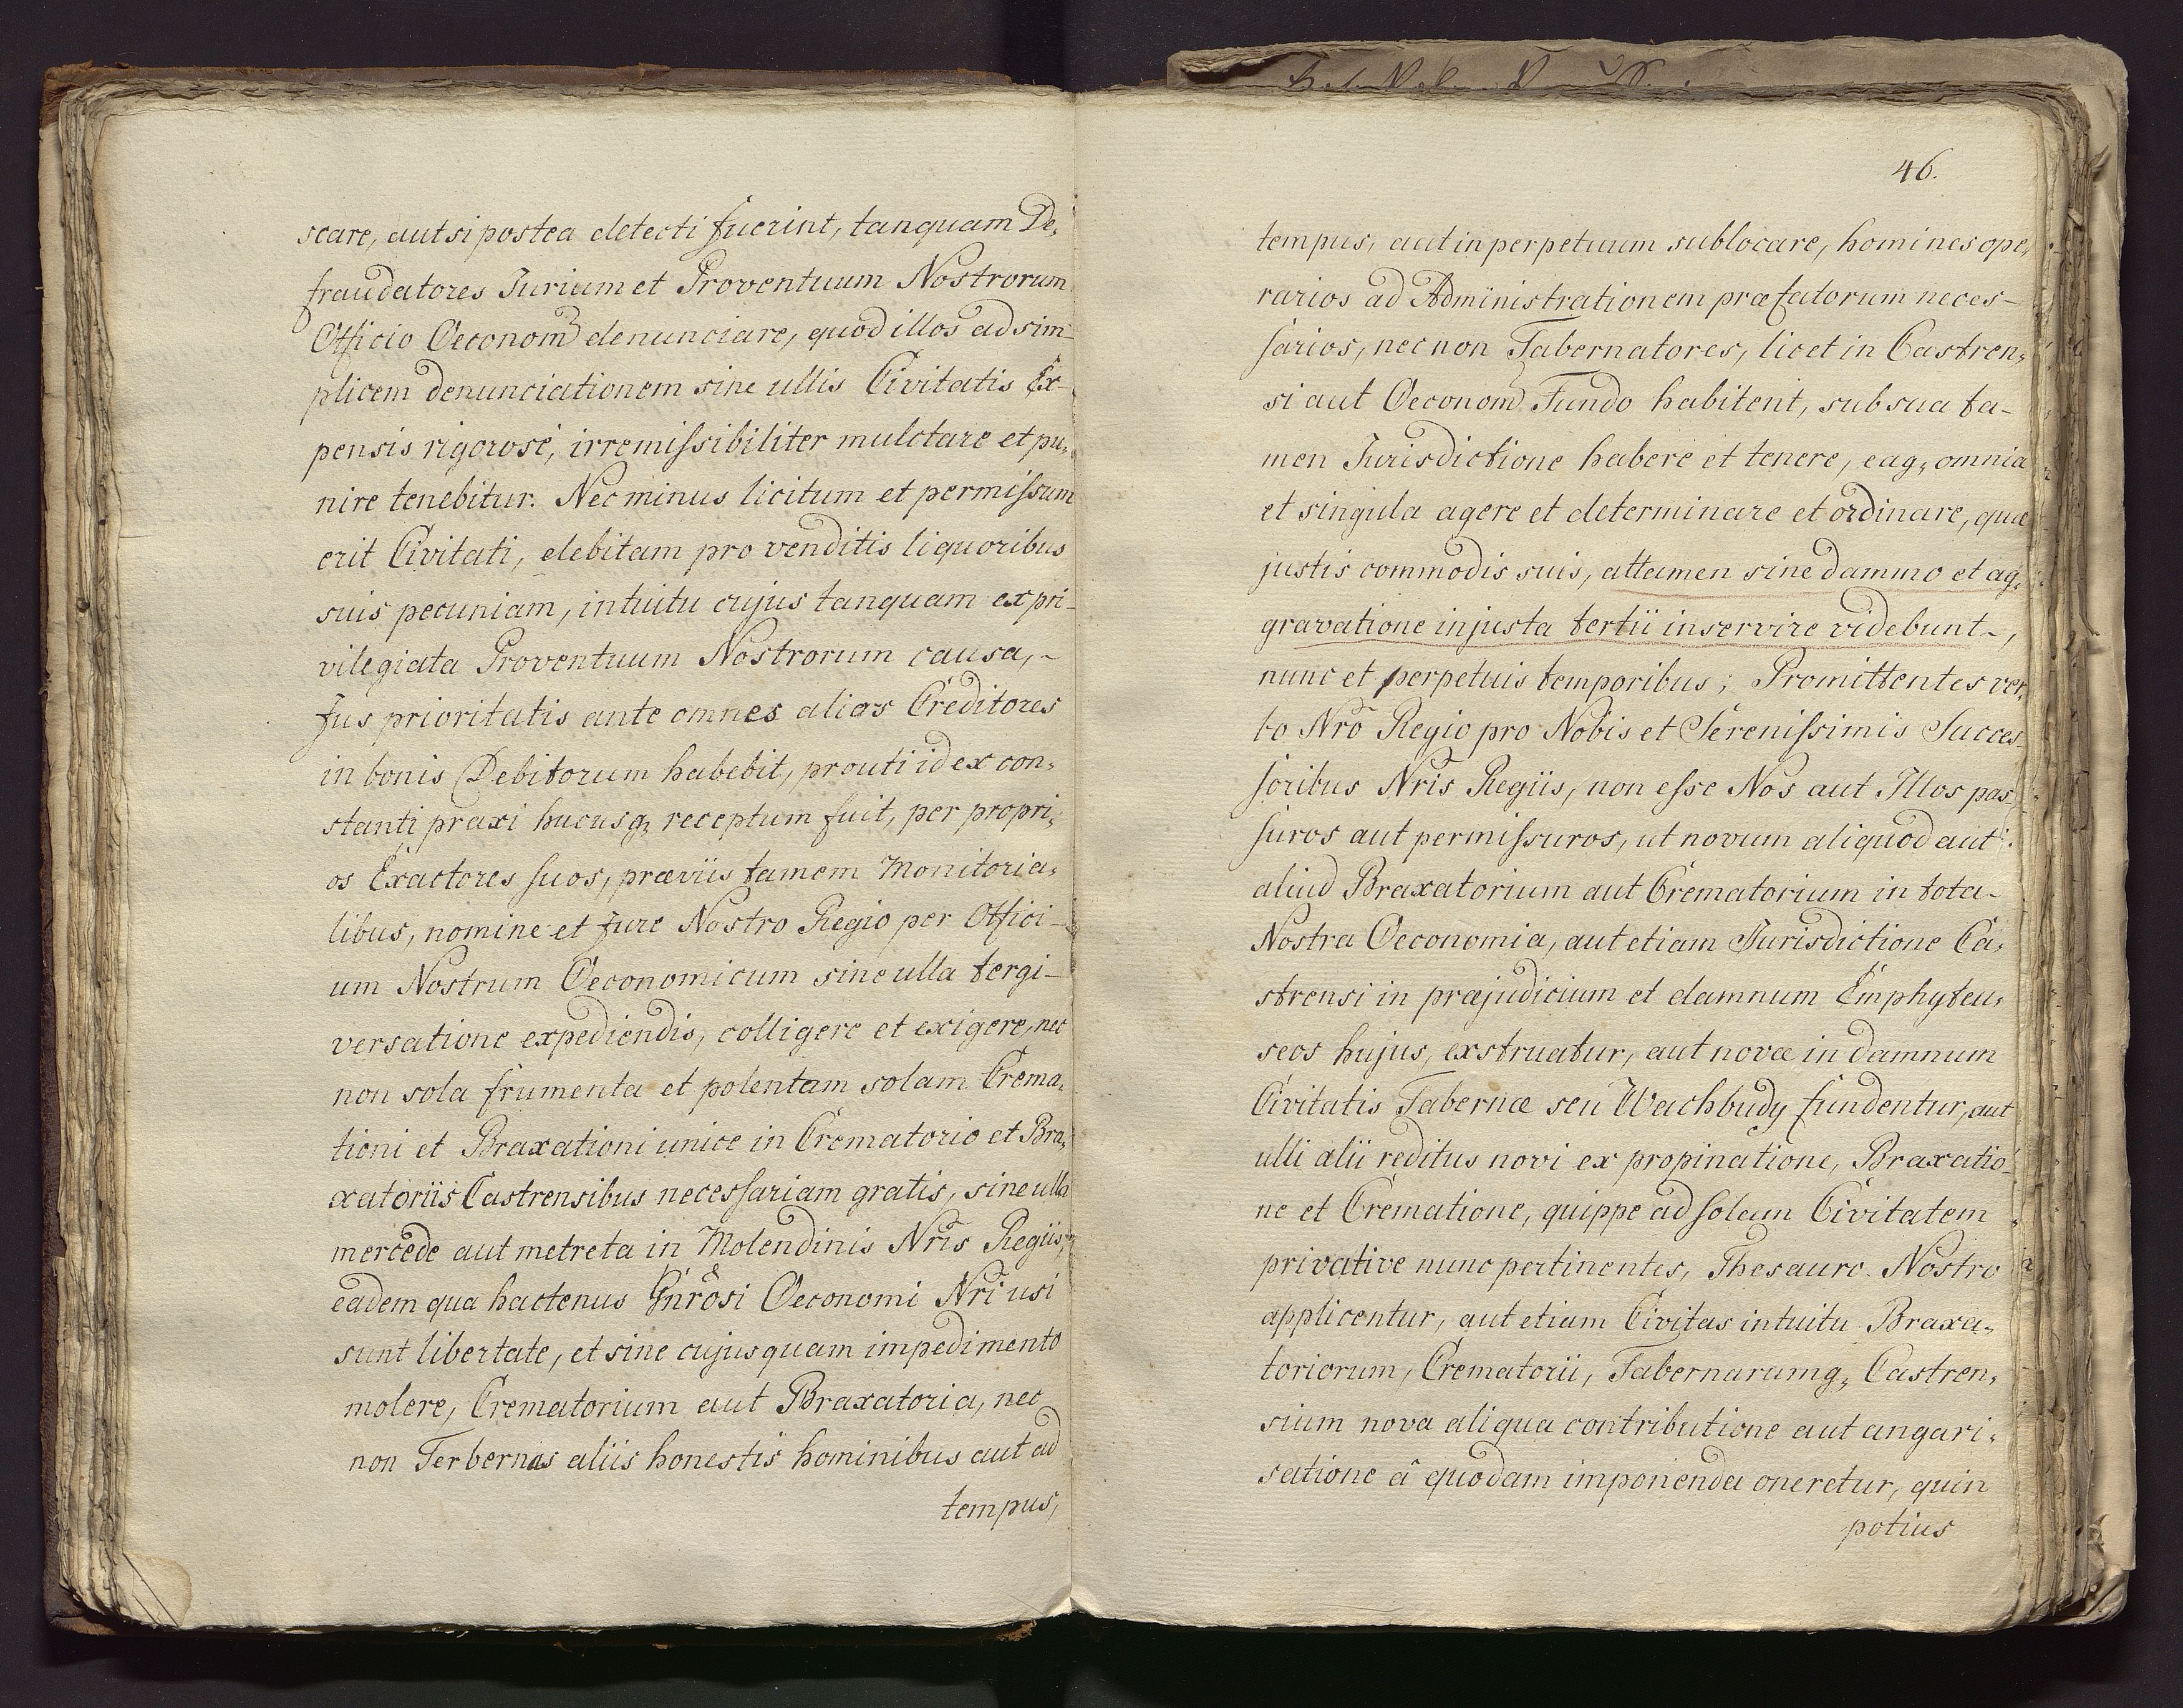 scare, aut si postea detecti fuerint, tanquam De,
fraudatores Jurium et Proventuum Nostrorum
Officio Oeconom̃ denunciare, quod illos ad sim-
plicem denunciationem sine ullis Civitatis Ex-
pensis rigorosé, irremissibiliter mulctare et pu,
nire tenebitur. Nec minus licitum et permissum
erit Civitati, debitam pro venditis liquoribus
suis pecuniam, intuitu cujus tanquam ex pri-
vilegiata Proventuum Nostrorum causa,-
Jus prioritatis ante omnes alios Creditores
in bonis Debitorum habebit, prouti id ex con,
stanti praxi hucusq, receptum fuit, per propri,
os Exactores suos, præviis tamem Monitoria,
libus, nomine et Jure Nostro Regio per Offici-
um Nostrum Oeconomicum sine ulla tergi-
versatione expediendis, colligere et exigere, nec
non sola frumenta et polentam solam Crema,
tioni et Braxationi unice in Crematorio et Bra,
xatoriis Castrensibus necessariam gratis, sine ulla
mercede aut metreta in Molendinis Nris Regiis,
eadem qua hactenus Gnrosi Oeconomi Nri usi
sunt libertate, et sine cujusquam impedimento
molere, Crematorium aut Braxatoria, nec
non Terbernas aliis honestis hominibus aut ad
tempus,
46.
tempus, aut in perpetuum sublocare, homines ope,
rarios ad Administrationem præfatorum neces-
sarios, nec non Tabernatores, licet in Castren,
si aut Oeconom̃ Fundo habitent, sub sua ta-
men Jurisdictione habere et tenere, eaq, omnia
et singula agere et determinare et ordinare, quæ
justis commodis suis, attamen sine damno et ag,
gravatione injusta tertii inservire videbunt-,
nunc et perpetuis temporibus; Promittentes ver,
bo Nrõ Regio pro Nobis et Serenissimis Succes-
soribus Nris Regiis, non esse Nos aut Illos pas-
suros aut permissuros, ut novum aliquod aut
aliud Braxatorium aut Crematorium in tota-
Nostra Oeconomia, aut etiam Jurisdictione Ca,
strensi in præjudicium et damnum Emphyteu,
seos hujus, exstruatur, aut novæ in damnum
Civitatis Tabernæ seu Wachbudy fundentur, aut
ulli alii reditus novi ex propinatione, Braxatio-
ne et Crematione, quippe ad solam Civitatem
privative nunc pertinentes, Thesauro Nostro
applicentur, aut etiam Civitas intuitu Braxa,
toriorum, Crematorii, Tabernarumq, Castren,
sium nova aliqua contributione aut angari,
satione â quodam imponenda oneretur, quin
potius